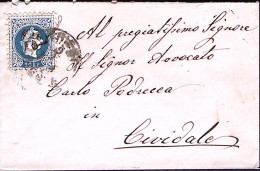 Al pregiatissimo Signore
Il Signor Avvocato
Carlo Podrecca
in
Cividale